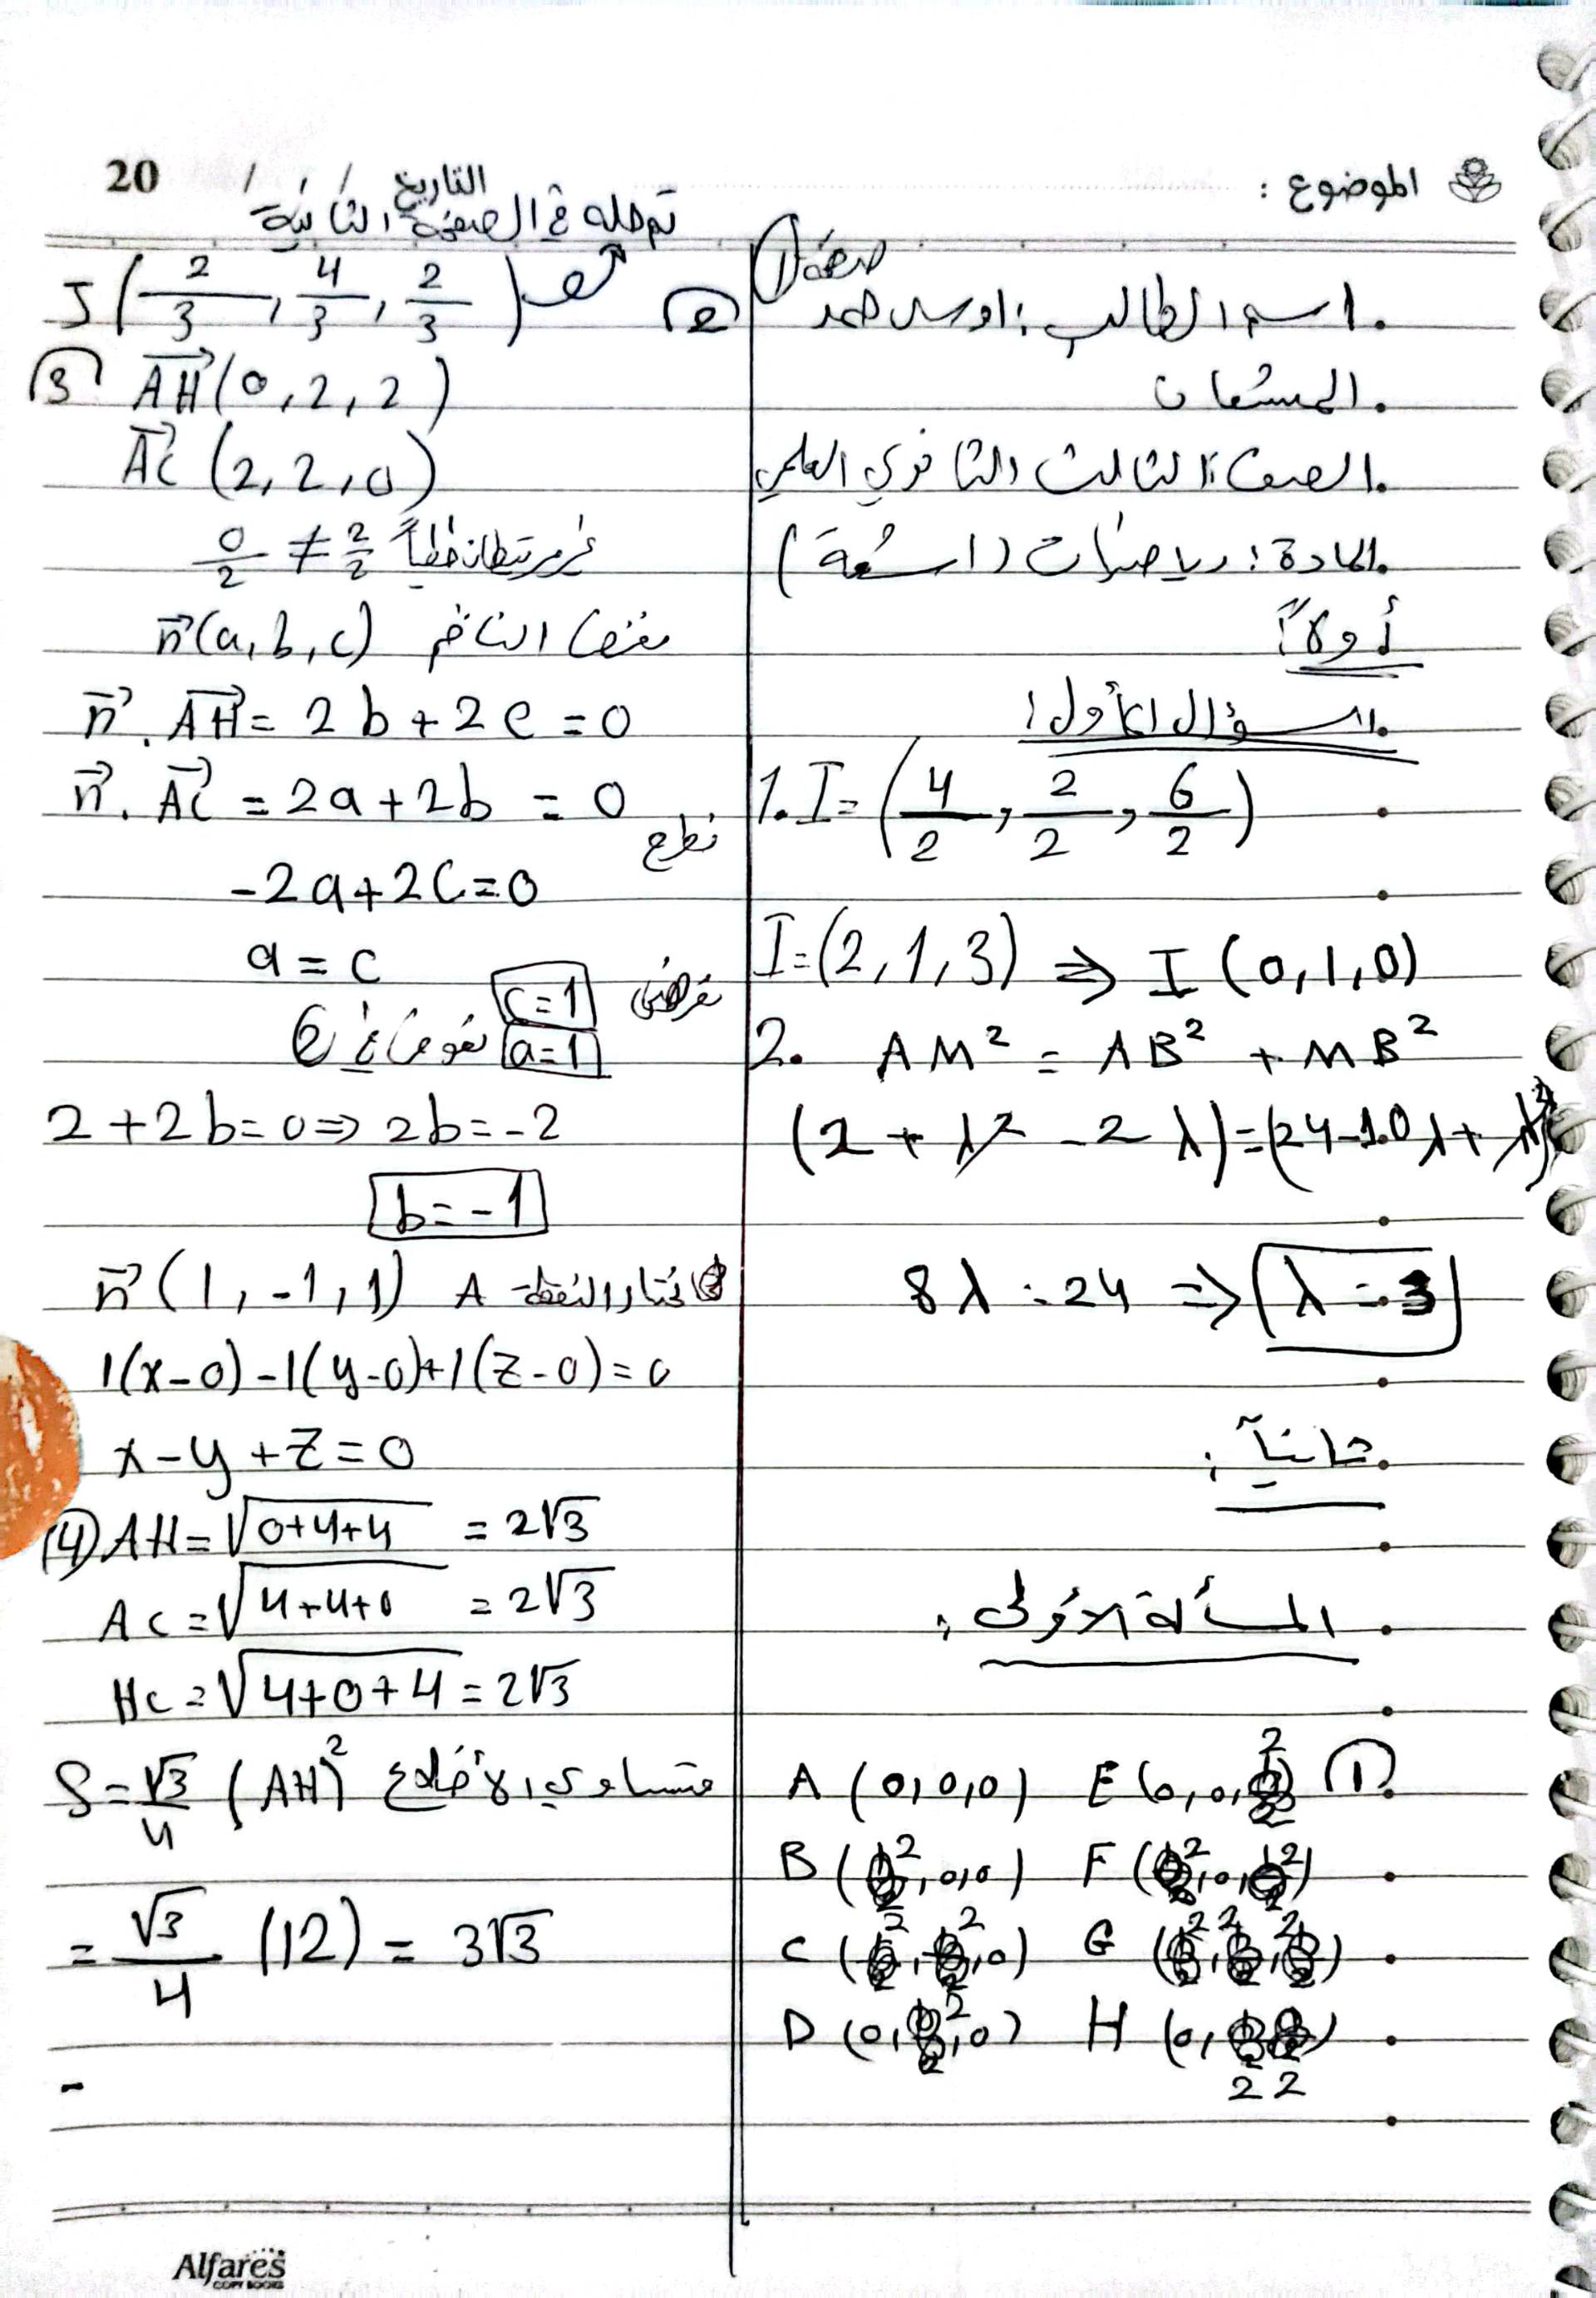 الموضوع :
التاريخ / / / 20
صفحة 1
اسم الطالب : اوس حمد
المستعان
الصف : الثالث الثانوي العلمي
المادة : رياضيات ( اشعة )
أولاً :
السؤال الأول :
1. I = (4/2, 2/2, 6/2)
I = (2, 1, 3) ⇒ I (0, 1, 0)
2. AM² = AB² + MB²
(2 + λ² - 2λ) = (24 - 10λ + λ²)
8λ = 24 ⇒ λ = 3
ثانياً :
المسألة الأولى :
① A (0,0,0) E (0,0,2)
B (2,0,0) F (2,0,2)
C (2,2,0) G (2,2,2)
D (0,2,0) H (0,2,2)
تم حله في الصفحة الثانية
② J (2/3, 4/3, 2/3)
③ AH→ (0,2,2)
AC→ (2,2,0)
0/2 ≠ 2/2 غير مرتبطان خطياً
n→(a,b,c) نفرض الناظم
n→ . AH→ = 2b + 2c = 0
n→ . AC→ = 2a + 2b = 0
نطرح
-2a + 2c = 0
a = c
نفرض c = 1
a = 1 نعوض في ②
2 + 2b = 0 ⇒ 2b = -2
b = -1
n→ (1, -1, 1) نختار النقطة A
1(x-0) - 1(y-0) + 1(z-0) = 0
x - y + z = 0
④ AH = √(0+4+4) = 2√3
AC = √(4+4+0) = 2√3
HC = √(4+0+4) = 2√3
S = √3/4 (AH)² متساوي الأضلاع
= √3/4 (12) = 3√3
-
Alfares
COPY BOOKS